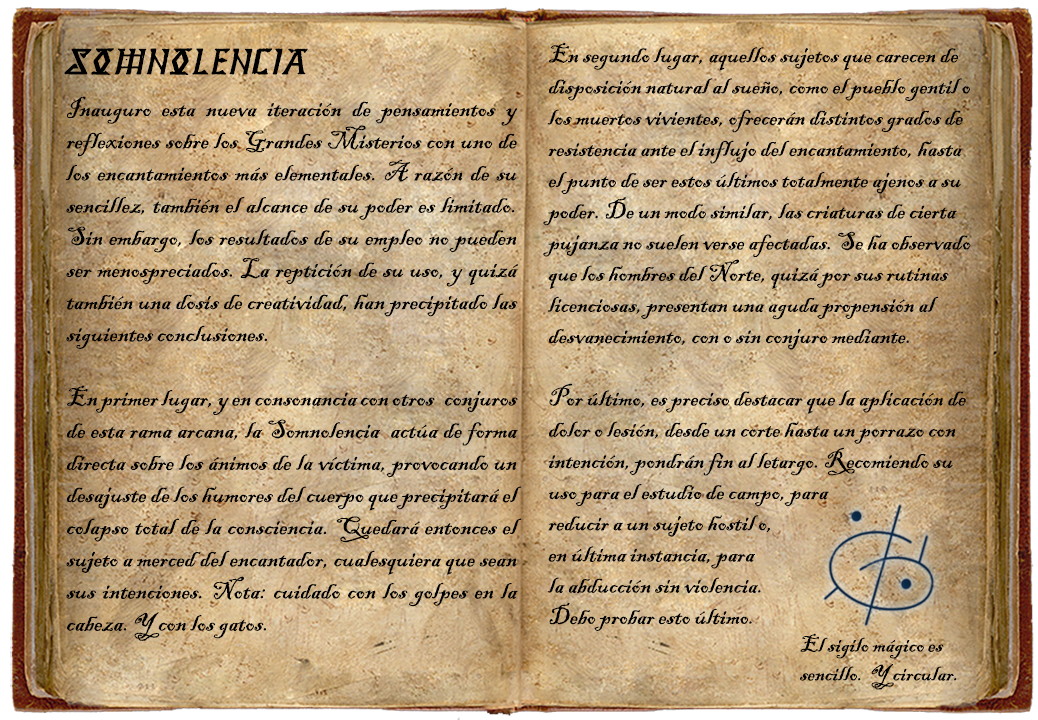 SOMNOLENCIA
Inauguro esta nueva iteración de pensamientos y
reflexiones sobre los Grandes Misterios con uno de
los encantamientos más elementales. A razón de su
sencillez, también el alcance de su poder es limitado.
Sin embargo, los resultados de su empleo no pueden
ser menospreciados. La repticición de su uso, y quizá
también una dosis de creatividad, han precipitado las
siguientes conclusiones.
En primer lugar, y en consonancia con otros conjuros
de esta rama arcana, la Somnolencia actúa de forma
directa sobre los ánimos de la víctima, provocando un
desajuste de los humores del cuerpo que precipitará el
colapso total de la consciencia. Quedará entonces el
sujeto a merced del encantador, cualesquiera que sean
sus intenciones. Nota: cuidado con los golpes en la
cabeza. Y con los gatos.
En segundo lugar, aquellos sujetos que carecen de
disposición natural al sueño, como el pueblo gentil o
los muertos vivientes, ofrecerán distintos grados de
resistencia ante el influjo del encantamiento, hasta
el punto de ser estos últimos totalmente ajenos a su
poder. De un modo similar, las criaturas de cierta
pujanza no suelen verse afectadas. Se ha observado
que los hombres del Norte, quizá por sus rutinas
licenciosas, presentan una aguda propensión al
desvanecimiento, con o sin conjuro mediante.
Por último, es preciso destacar que la aplicación de
dolor o lesión, desde un corte hasta un porrazo con
intención, pondrán fin al letargo. Recomiendo su
uso para el estudio de campo, para
reducir a un sujeto hostil o,
en última instancia, para
la abducción sin violencia.
Debo probar esto último.
El sigilo mágico es
sencillo. Y circular.